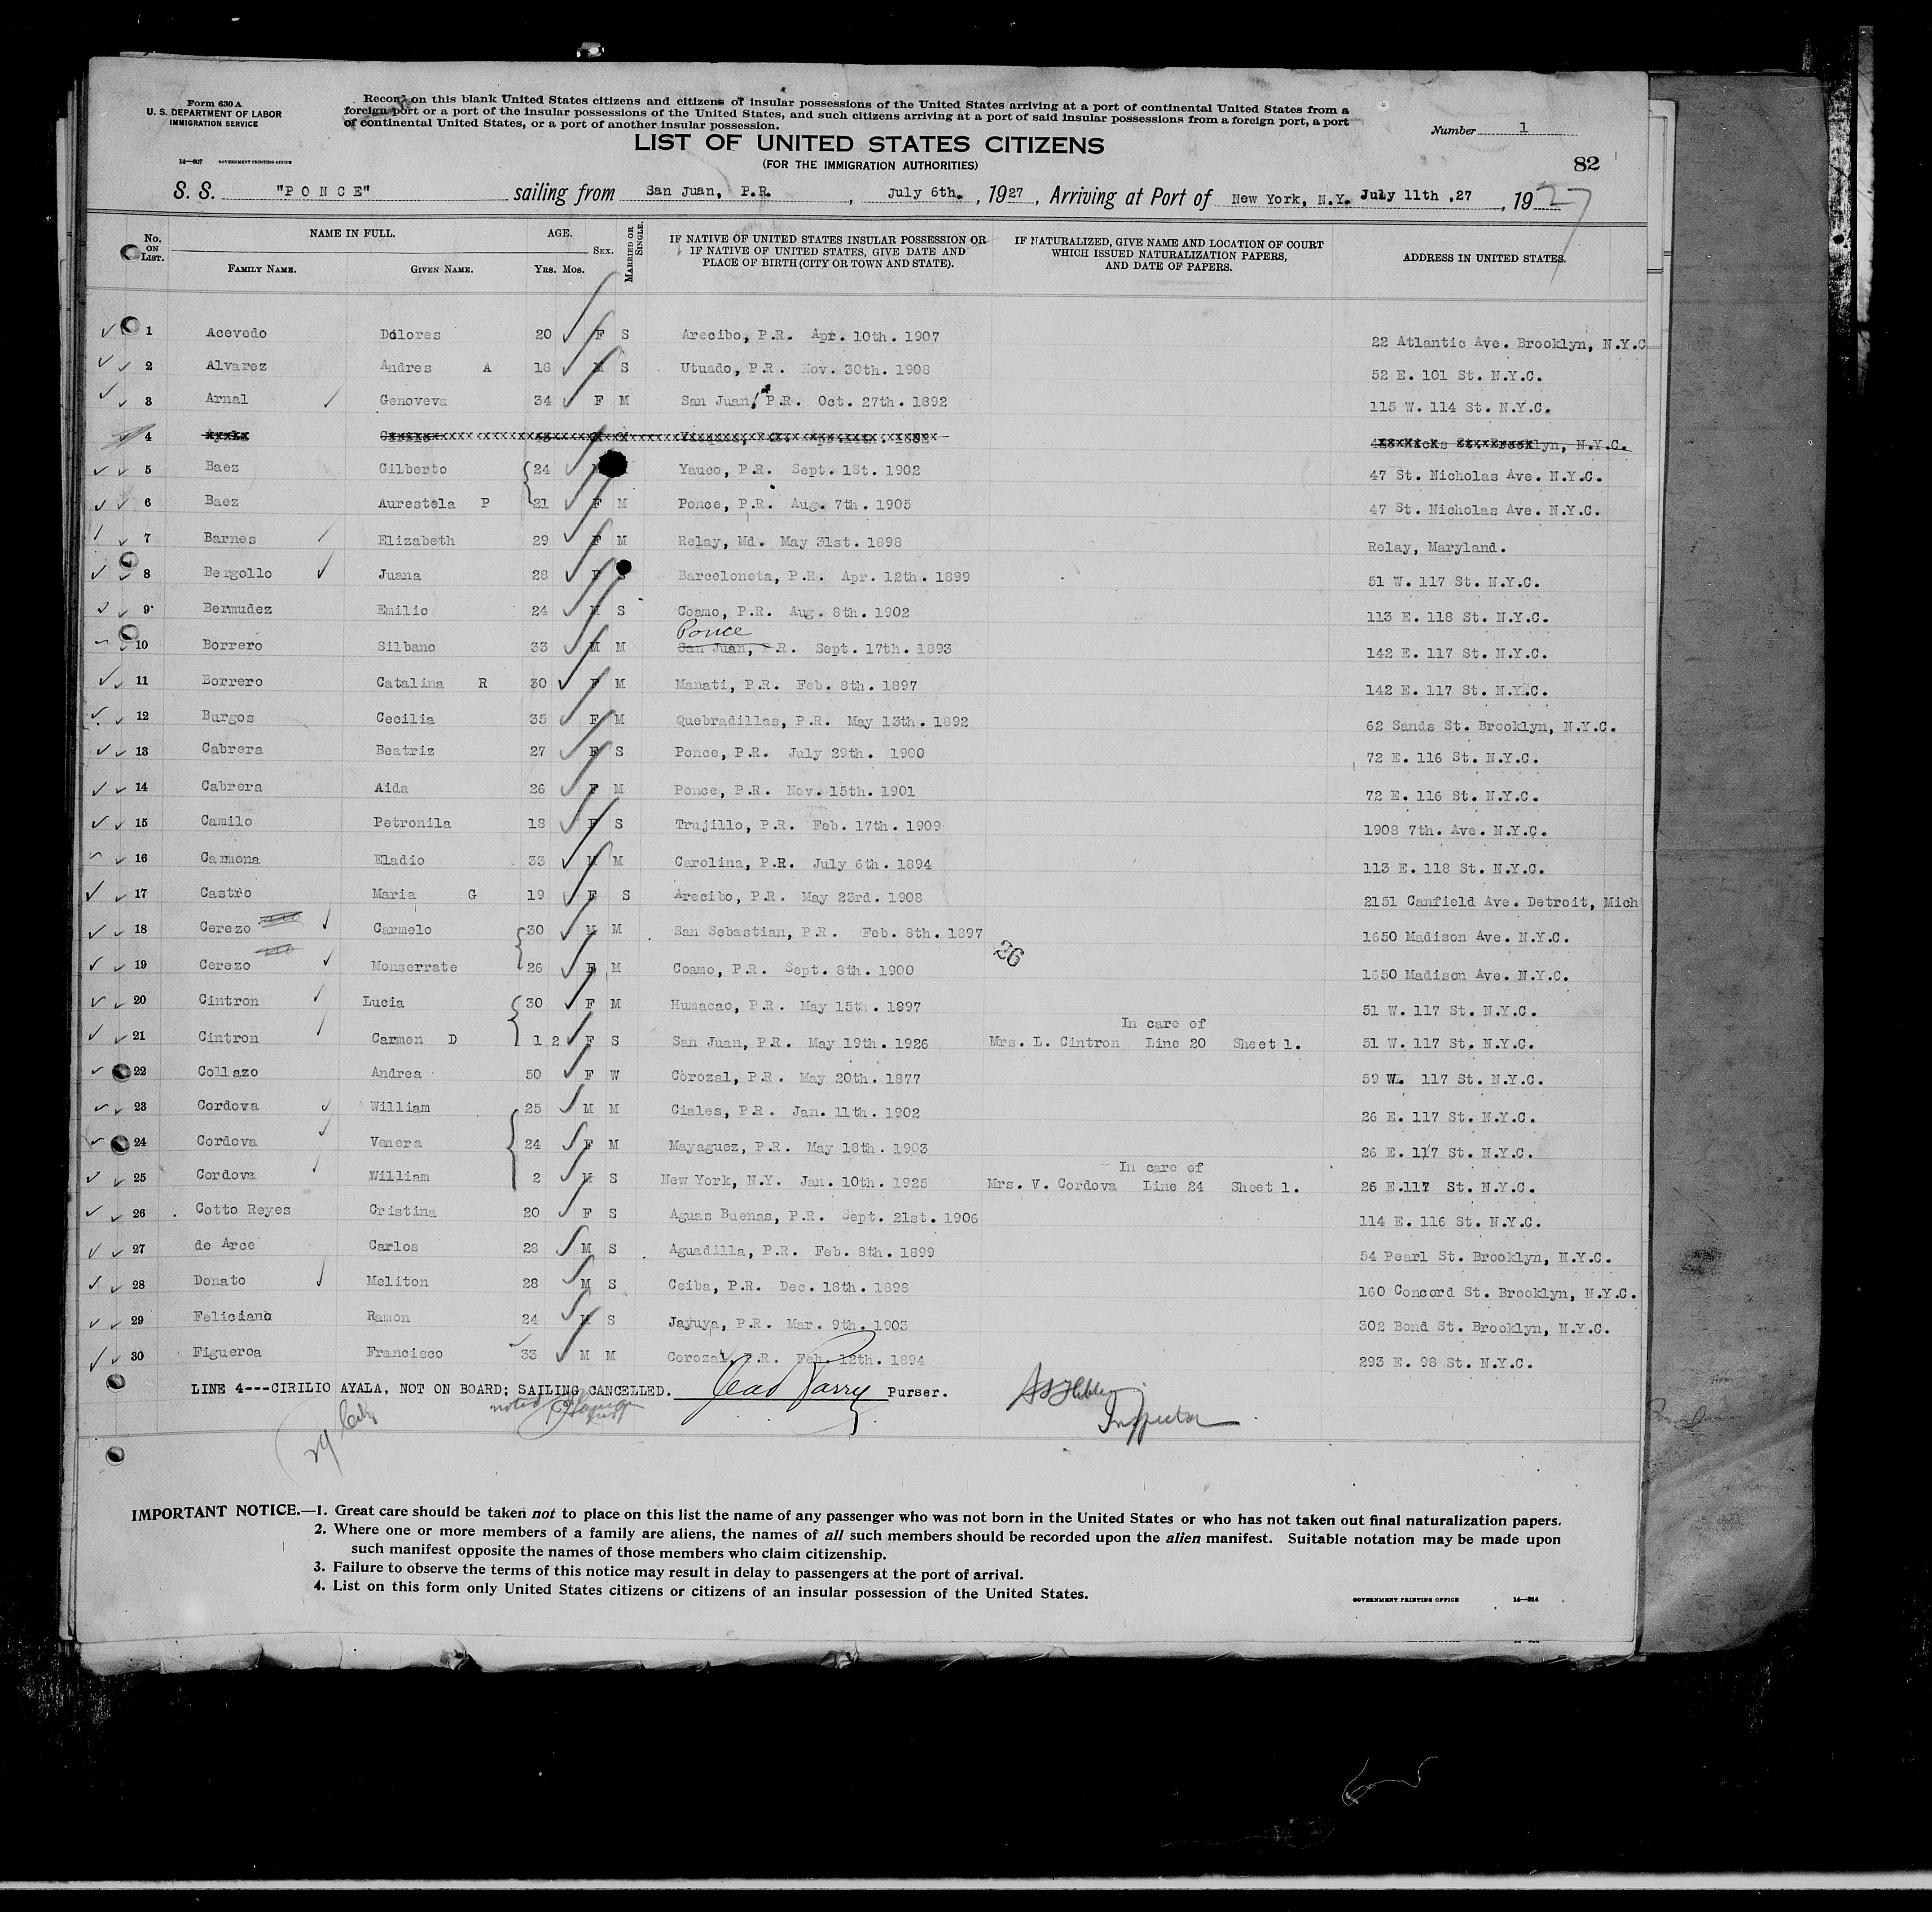 Form 630 A
U. S. DEPARTMENT OF LABOR
IMMIGRATION SERVICE
14—607 GOVERNMENT PRINTING OFFICE
Record on this blank United States citizens and citizens of insular possessions of the United States arriving at a port of continental United States from a
foreign port or a port of the insular possessions of the United States, and such citizens arriving at a port of said insular possessions from a foreign port, a port
of continental United States, or a port of another insular possession.
Number 1
LIST OF UNITED STATES CITIZENS
(FOR THE IMMIGRATION AUTHORITIES)
82
S. S. "PONCE" sailing from San Juan, P.R. , July 6th. , 1927 , Arriving at Port of New York, N.Y. July 11th ,27 , 1927
No. ON LIST. NAME IN FULL. AGE. SEX. MARRIED OR SINGLE. IF NATIVE OF UNITED STATES INSULAR POSSESSION OR IF NATIVE OF UNITED STATES, GIVE DATE AND PLACE OF BIRTH (CITY OR TOWN AND STATE). IF NATURALIZED, GIVE NAME AND LOCATION OF COURT WHICH ISSUED NATURALIZATION PAPERS, AND DATE OF PAPERS. ADDRESS IN UNITED STATES.
FAMILY NAME. GIVEN NAME. YRS. MOS.
1 Acevedo Dolores 20 F S Arecibo, P.R. Apr. 10th. 1907 22 Atlantic Ave. Brooklyn, N.Y.C
2 Alvarez Andres A 18 M S Utuado, P.R. Nov. 30th. 1908 52 E. 101 St. N.Y.C.
3 Arnal Genoveva 34 F M San Juan, P.R. Oct. 27th. 1892 115 W. 114 St. N.Y.C.
4
5 Baez Gilberto 24 Yauco, P.R. Sept. 1St. 1902 47 St. Nicholas Ave. N.Y.C.
6 Baez Aurestela P 21 F M Ponce, P.R. Aug. 7th. 1905 47 St. Nicholas Ave. N.Y.C.
7 Barnes Elizabeth 29 F M Relay, Md. May 31st. 1898 Relay, Maryland.
8 Bergollo Juana 28 F S Barceloneta, P.R. Apr. 12th. 1899 51 W. 117 St. N.Y.C.
9 Bermudez Emilio 24 M S Coamo, P.R. Aug. 8th. 1902 113 E. 118 St. N.Y.C.
Ponce
10 Borrero Silbano 33 M M San Juan, P.R. Sept. 17th. 1893 142 E. 117 St. N.Y.C.
11 Borrero Catalina R 30 F M Manati, P.R. Feb. 8th. 1897 142 E. 117 St. N.Y.C.
12 Burgos Cecilia 35 F M Quebradillas, P.R. May 13th. 1892 62 Sands St. Brooklyn, N.Y.C.
13 Cabrera Beatriz 27 F S Ponce, P.R. July 29th. 1900 72 E. 116 St. N.Y.C.
14 Cabrera Aida 26 F M Ponce, P.R. Nov. 15th. 1901 72 E. 116 St. N.Y.C.
15 Camilo Petronila 18 F S Trujillo, P.R. Feb. 17th. 1909 1908 7th. Ave. N.Y.C.
16 Carmona Eladio 33 M M Carolina, P.R. July 6th. 1894 113 E. 118 St. N.Y.C.
17 Castro Maria G 19 F S Arecibo, P.R. May 23rd. 1908 2151 Canfield Ave. Detroit, Mich
18 Cerezo Carmelo 30 M M San Sebastian, P.R. Feb. 8th. 1897 1650 Madison Ave. N.Y.C.
26
19 Cerezo Monserrate 26 F M Coamo, P.R. Sept. 8th. 1900 1650 Madison Ave. N.Y.C.
20 Cintron Lucia 30 F M Humacao, P.R. May 15th. 1897 51 W. 117 St. N.Y.C.
In care of
21 Cintron Carmen D 1 2 F S San Juan, P.R. May 19th. 1926 Mrs. L. Cintron Line 20 Sheet 1. 51 W. 117 St. N.Y.C.
22 Collazo Andrea 50 F W Corozal, P.R. May 20th. 1877 59 W. 117 St. N.Y.C.
23 Cordova William 25 M M Ciales, P.R. Jan. 11th. 1902 26 E. 117 St. N.Y.C.
24 Cordova Venera 24 F M Mayaguez, P.R. May 18th. 1903 26 E. 117 St. N.Y.C.
In care of
25 Cordova William 2 M S New York, N.Y. Jan. 10th. 1925 Mrs. V. Cordova Line 24 Sheet 1. 26 E.117 St. N.Y.C.
26 Cotto Reyes Cristina 20 F S Aguas Buenas, P.R. Sept. 21st. 1906 114 E. 116 St. N.Y.C.
27 de Arce Carlos 28 M S Aguadilla, P.R. Feb. 8th. 1899 54 Pearl St. Brooklyn, N.Y.C.
28 Donato Meliton 28 M S Ceiba, P.R. Dec. 18th. 1898 160 Concord St. Brooklyn, N.Y.C.
29 Feliciano Ramon 24 M S Jayuya, P.R. Mar. 9th. 1903 302 Bond St. Brooklyn, N.Y.C.
30 Figueroa Francisco 33 M M Corozal, P.R. Feb. 12th. 1894 293 E. 98 St. N.Y.C.
LINE 4---CIRILIO AYALA, NOT ON BOARD; SAILING CANCELLED. Purser.
noted Inspector
29
IMPORTANT NOTICE.—1. Great care should be taken not to place on this list the name of any passenger who was not born in the United States or who has not taken out final naturalization papers.
2. Where one or more members of a family are aliens, the names of all such members should be recorded upon the alien manifest. Suitable notation may be made upon
such manifest opposite the names of those members who claim citizenship.
3. Failure to observe the terms of this notice may result in delay to passengers at the port of arrival.
4. List on this form only United States citizens or citizens of an insular possession of the United States.
GOVERNMENT PRINTING OFFICE 14—214